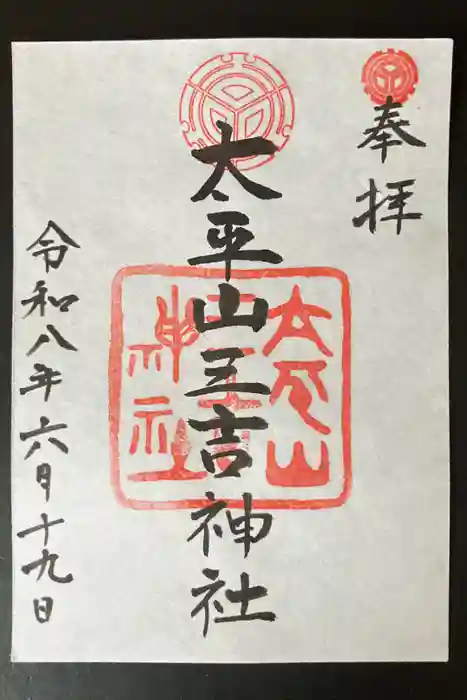 奉拝
太平山三吉神社
令和八年六月十九日
太平山
三吉
神社